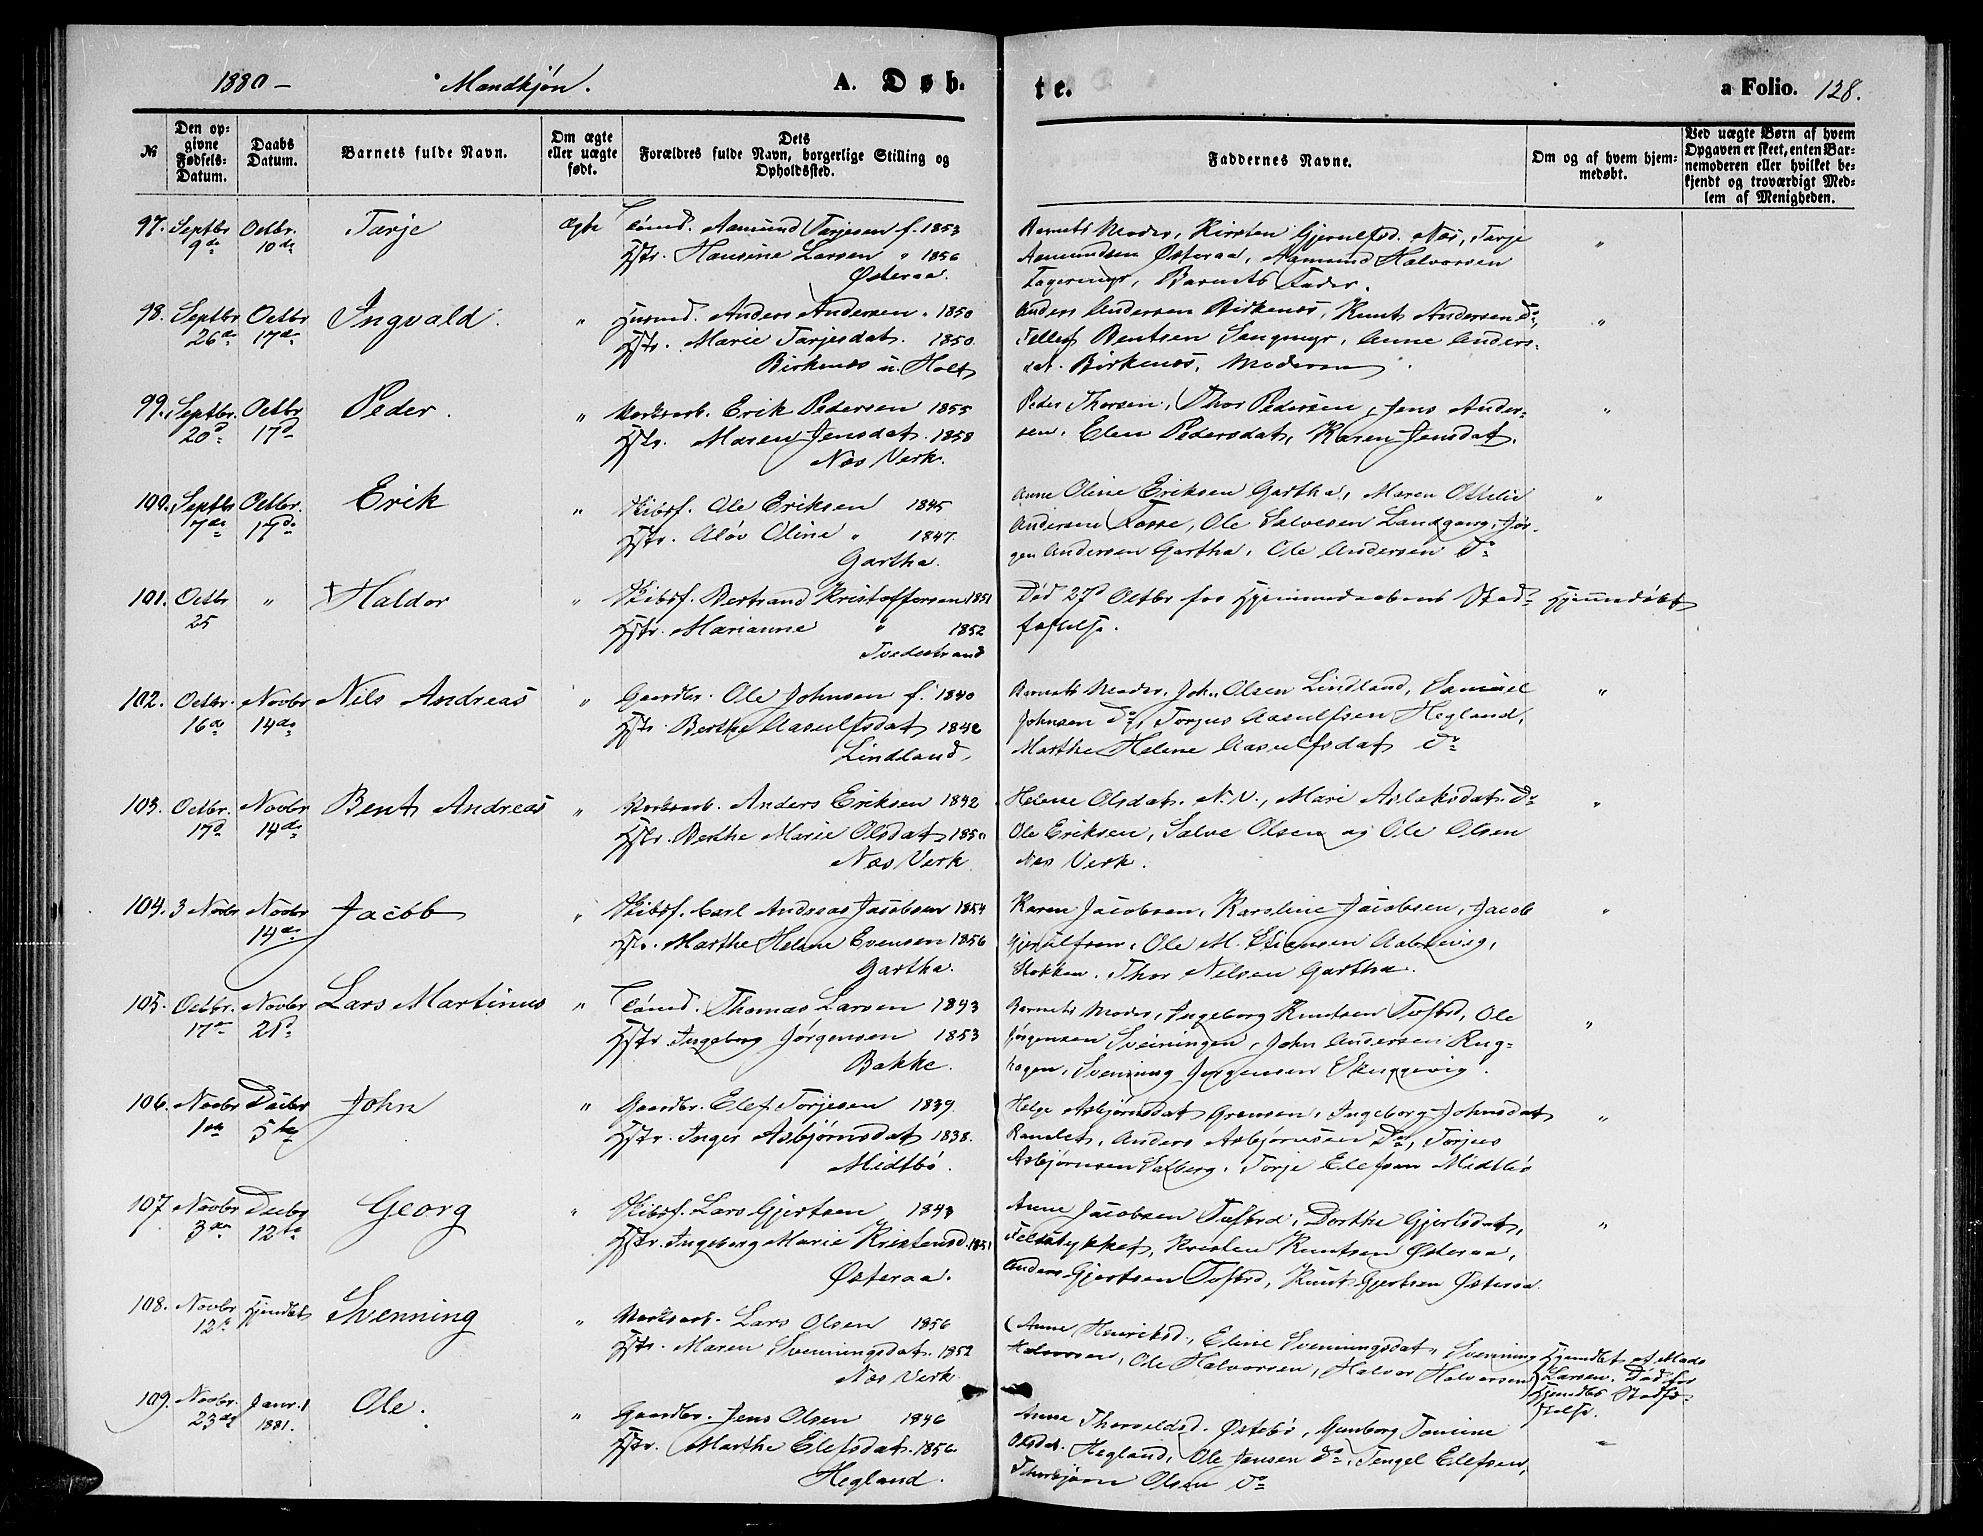 1880 – Mandkjøn. A. Døb- te. a Folio. 128.
№
Den op-
givne
Fødsels-
Datum.
Daabs
Datum.
Barnets fulde Navn.
Om ægte
eller uægte
født.
Dets
Forældres fulde Navn, borgerlige Stilling og
Opholdssted.
Faddernes Navne.
Om og af hvem hjem-
medøbt.
Ved uægte Børn af hvem
Opgaven er skeet, enten Bar-
nemoderen eller hvilket be-
kjendt og troværdigt Med-
lem af Menigheden.
97. Septbr Octbr. Tarje Ægte Tømd. Aamund Tarjesen f. 1853
9de 10de Hstr. Hansine Larsen " 1856
Østeraa.
Barnets Moder, Kirsten Gjerulfsd. Næs, Tarje "
Aamundsen Østeraa, Aamund Halvorsen
Fagermyr, Barnets Fader.
98. Septbr Octbr Ingvald. " Husmd. Anders Andersen " 1850
26de 17de Hstr. Marie Tarjesdat. 1850
Birkenæs i Holt
Anders Andersen Birkenæs, Knut Andersen Do, "
Tellef Bentsen Sangmyr, Anne Anders-
dat. Birkenæs, Moderen.
99. Septbr. Octbr Peder. " Verksarb. Erik Pedersen 1855
20d 17d Hstr. Maren Jensdat. 1858
Næs Verk.
Peder Thorsen, Thor Pedersen, Jens Ander- "
sen, Elen Pedersdat, Karen Jensdat.
100. Septbr Octbr. Erik " Skibsf. Ole Eriksen 1845
7de 17de Hstr. Aløv Oline " 1847.
Gartha.
Anne Oline Eriksen Gartha, Maren Ottilie "
Andersen Fosse, Ole Salvesen Landgang, Jør-
gen Andersen Gartha, Ole Andersen Do
101. Octbr " † Haldor " Skibsf. Bertrand Kristoffersen 1851
25 Hstr. Marianne " 1852
Tvedestrand
Død 27d Octbr før Hjemmedaabens Stad- Hjemmedøbt
fæstelse.
102. Octbr. Novbr Nils Andreas " Gaardbr. Ole Johnsen f. 1840
16de 14de Hstr Berthe Aasulfsdat 1842
Lindland,
Barnets Moder, Joh. Olsen Lindland, Samuel "
Johnsen Do, Torjus Aasulfsen Hegland,
Marthe Helene Aasulfsdat Do
103. Octbr. Novbr Bent Andreas " Verksarb. Anders Eriksen 1842
17d 14de Hstr. Berthe Marie Olsdat
Næs Verk
Helene Olsdat. N. V., Mari Aslaksdat. Do "
Ole Eriksen, Salve Olsen og Ole Olsen
Næs Verk.
104. 3 Novbr Novbr Jacob " Skibsf. Carl Andreas Jacobsen 1854
14de Hstr. Marthe Helene Evensen 1856
Gartha.
Karen Jacobsen, Karoline Jacobsen, Jacob "
Gjerulfsen, Ole M.
Stokken, Thor Nilsen Gartha.
105. Octbr. Novbr Lars Martinus " Tømd. Thomas Larsen 1843
17de 21d Hstr Ingeborg Jørgensen 1853
Bakke.
Barnets Moder, Ingeborg Knutsen Tofbrd, Ole "
Jørgensen Sveiningen, John Andersen Rug-
hagen, Svenning Jørgensen Skuggevig.
106. Novbr Decbr John " Gaardbr. Elef Torjesen 1839.
1ste 5te Hstr. Inger Asbjørnsdat 1838.
Midtbø.
Helge Asbjørnsdat Grønsen, Ingeborg Johnsdat "
Ramlet, Anders Asbjørnsen Do, Torjus
Asbjørnsen Solberg, Torje Elefsen Midtbø
107. Novbr Decbr Georg " Skibsf. Lars Gjertsen 1843
3de 12te Hstr. Ingeborg Marie Kristensd. 1851
Østeraa.
Anne Jacobsen Tofbrd, Dorthe Gjertsdat, "
Feltstykket, Kristen Knutsen Østeraa,
Anders Gjertsen Tofbrd, Knut Gjertsen Østeraa
108. Novbr Hjemdøbt Svenning " Verksarb. Lars Olsen 1856
12te Hstr. Maren Svenningsdat. 1852
Næs Verk
(Anne Henriksd., Eline Svenningsdat, Svenning Hjemdøbt af Mads
Halvorsen, Ole Halvorsen, Halvor Halvorsen) Larsen. Død før
Hjemdøb Stadfæ-
stelse.
109. Novbr. Janr. 1 Ole. " Gaardbr. Jens Olsen 1846
23de 1881. Hstr. Marthe Elefsdat. 1856
Hegland.
Anne Thorvaldsd. Østebø, Gunborg Tomine "
Olsdat. Hegland, Ole Jensen Do, Tengel Elefsen,
Thorbjørn Olsen Do